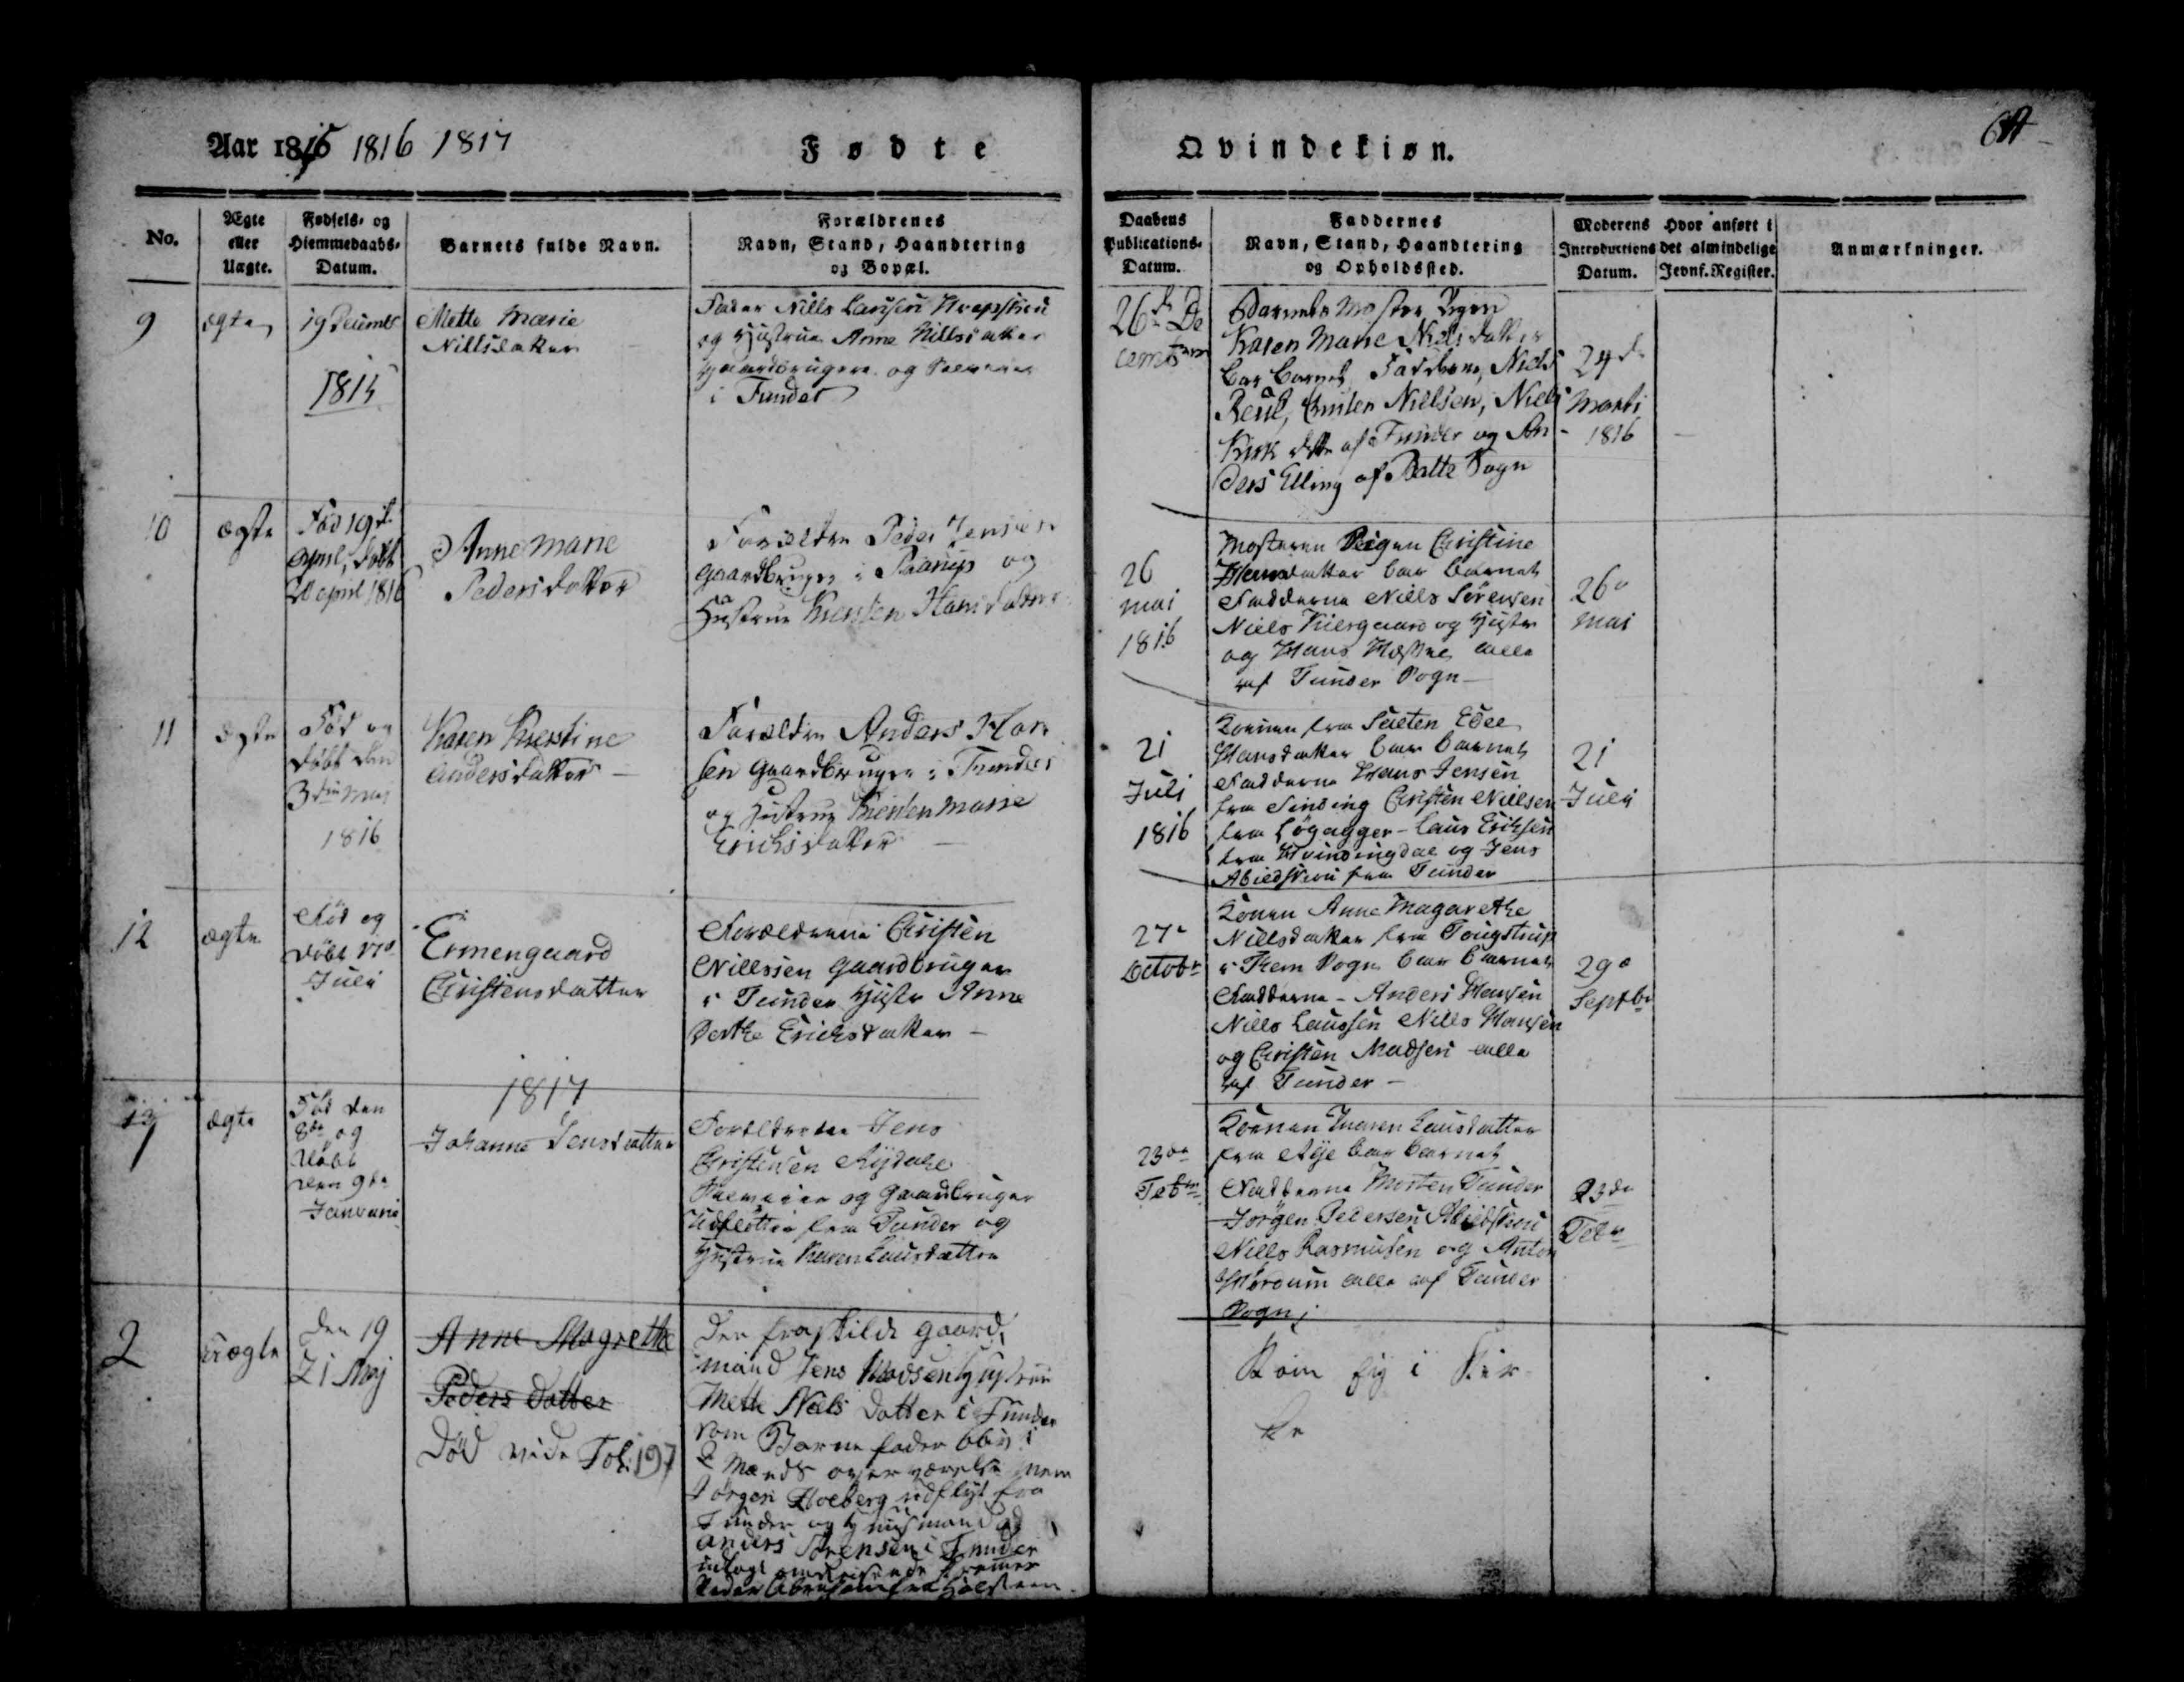 Aar 1815 1816 1817
Fødte
Qvindekiøn.
No.
Ægte
eller
Uægte.
Fødsels- og
Hiemmedaabs-
Datum.
Barnets fulde Navn.
Forældrenes
Navn, Stand, Haandtering
og Bopæl.
Daabens
Publications-
Datum.
Faddernes
Navn, Stand, Haandtering
og Opholdssted.
Moderens
Introductions
Datum.
Hvor anført i
det almindelige
Jevnf. Register.
Anmærkninger.
9
ægte
19 Decembr
1815
Mette Marie
Nillsdatter
Fader Nills Laussen
og Hustrue Anne Nillsdatter
Gaardbrugere og
i Funder
26de De
cembr
Barnets Moster Pigen
Karen Marie Nielsdatter
bar Barnet Fadderne, Niels
Christen Nielsen, Niels
Kirk af Funder og An-
ders Elling af Balle Sogn
24de
Marti
1816
10
ægte
Fød 19de
April, døbt
20 April 1816
Anne Marie
Pedersdatter
Forældre Peder Jensen
Gaardbruger i Paarup og
Hustrue Kiersten Hansdatter
26
Mai
1816
Mosteren Pigen Christine
Hansdatter bar Barnet
Fadderne Niels Sørensen
Niels Kiergaard og Hustr
og Hans alle
af Funder Sogn
26
Mai
11
ægte
Fød og
døbt den
3die Mai
1816
Karen Kierstine
Andersdatter
Forældre Anders Han
sen Gaardbruger i Funder
og Hustrue Kiersten Marie
Erichsdatter
21
Juli
1816
Konen fra Edel
Hansdatter bar Barnet
Fadderne Hans Jensen
fra Sinding Christen Nielsen
fra Løgagger - Laus Erichsen
fra Hvindingdal og Jens
Abildskou fra Funder
21
Juli
12
ægte
Fød og
døbt 17de
Juli
Ermengaard
Christensdatter
Forældrene Christen
Nillssen Gaardbruger
i Funder Hustr Anne
Berthe Erichsdatter
27
Octobr
Konen Anne Magarethe
Nillsdatter fra
i Them Sogn bar Barnet
Fadderne - Anders Hansen
Niels Laussen Niels Hansen
og Christen Madsen alle
af Funder
29
Septbr
1817
ægte
Fød den
8de og
døbt
den 9de
Januarii
Johanne Jensdatter
Forældrene Jens
Christensen Rydahl
og Gaardbruger
Udflytter fra Funder og
Hustrue Karen Lausdatter
23de
Febr
Konen Maren Lausdatter
fra bar Barnet
Fadderne Morten Funder
Jørgen Pedersen Abildskou
Niels Rasmusen og Anton
alle af Funder
Sogn
23de
Febr
2
uægte
Den 19
21 Maj
Anne Magrethe
Peders Datter
Død vide Fol: 197
Den fraskilde Gaard-
mand Jens Madsen Hustrue
Mette Niels Datter i Funder
som Barne fader blev i
2 Mænds overværelse
Jørgen Hoeberg udflyt fra
Funder og Huusmand
Anders Sørensen i Funder
Peder fra Holsteen
Kom ej i Kir-
ke